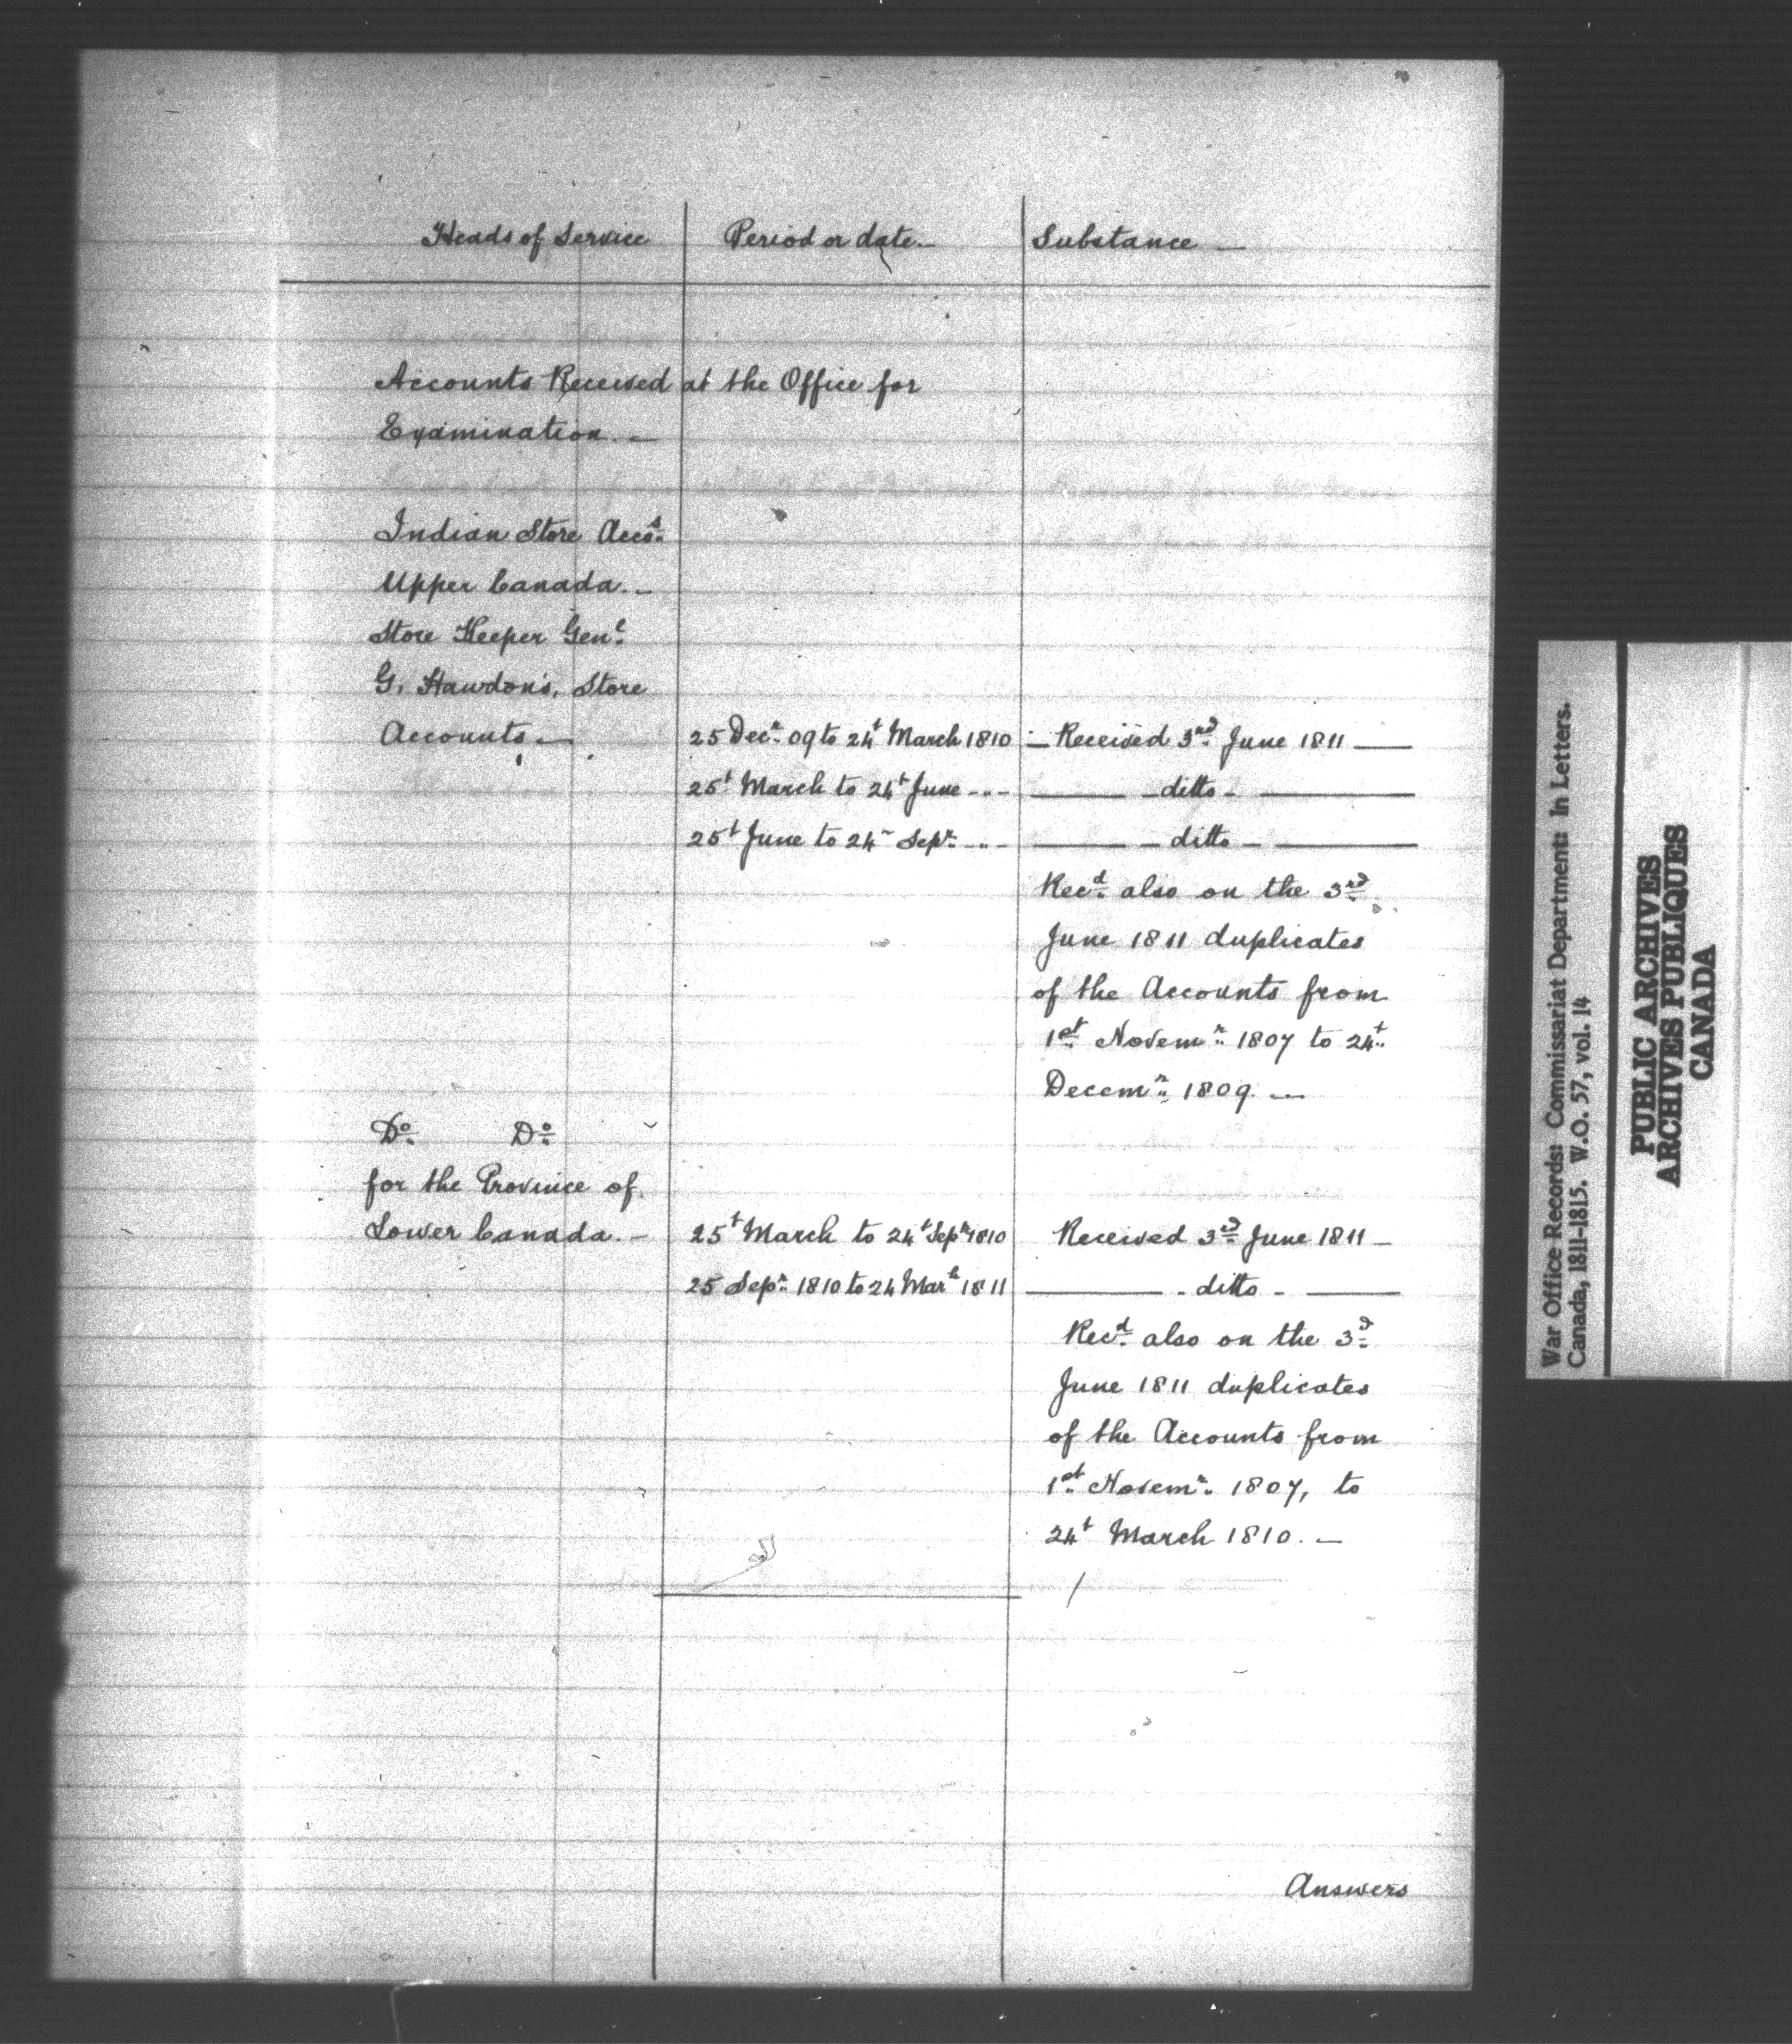 Heads of Service | Period or date. — | Substance —
Accounts Received at the Office for
Examination. —
Indian Store Accots.
Upper Canada. —
Store Keeper Genl.
G. Hawdon's, Store
Accounts. — | 25 Decr. 09 to 24t March 1810 | — Received 3rd June 1811 —
25t March to 24t June - .. - | — ditto - —
25t June to 24 Sepr. - .. - | — ditto - —
Recd. also on the 3rd
June 1811 duplicates
of the Accounts from
1st Novemr. 1807 to 24t
Decemr. 1809. —
Do. Do.
for the Province of
Lower Canada. — | 25t March to 24t Sepr 1810 | Received 3rd June 1811 —
25 Sepr. 1810 to 24 Marh 1811 | — - ditto - —
Recd. also on the 3d
June 1811 duplicates
of the Accounts from
1st Novemr. 1807, to
24t March 1810. —
Answers
War Office Records: Commissariat Department: In Letters.
Canada, 1811-1815. W.O. 57, vol. 14
PUBLIC ARCHIVES
ARCHIVES PUBLIQUES
CANADA